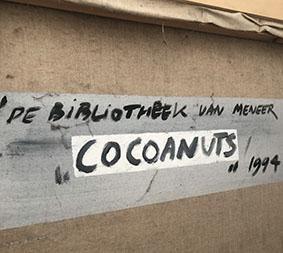 "DE BiBLiOTHEEK VAN MENEER
COCOANUTS
" 1994